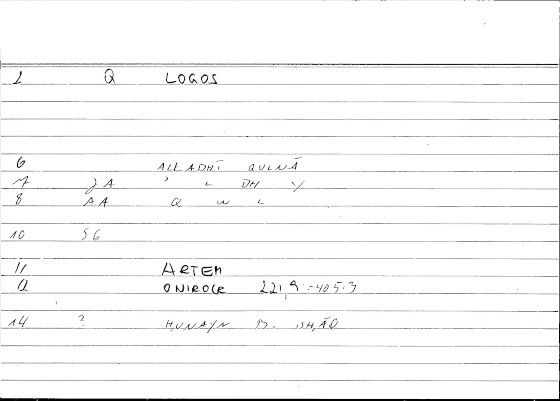 1 Q LOGOS
6 ALLADHĪ QULNĀ
7 JA ' L DH Y
8 AA Q W L
10 SG
11 ARTEM
12 ONIROCR 221,9 = 405.3
14 ? ḤUNAYN B. ISḤĀQ